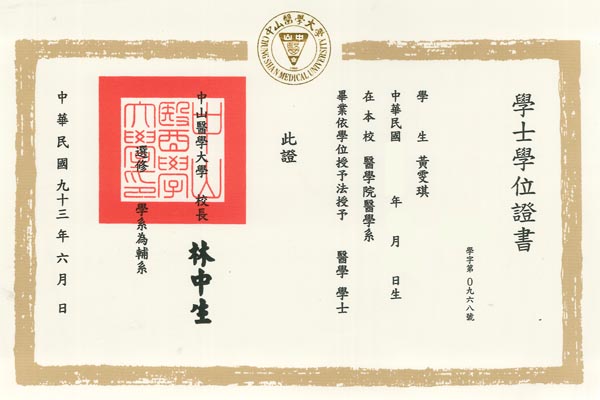 中山醫學大學
CHUNG SHAN MEDICAL UNIVERSITY
學士學位證書
學字第０九六八號
學生 黃雯琪
中華民國 年 月 日生
在本校 醫學院醫學系
畢業依學位授予法授予 醫學 學士
此證
中山醫學大學 校長 林中生
選修 學系為輔系
中山
醫學
大學
中華民國九十三年六月 日